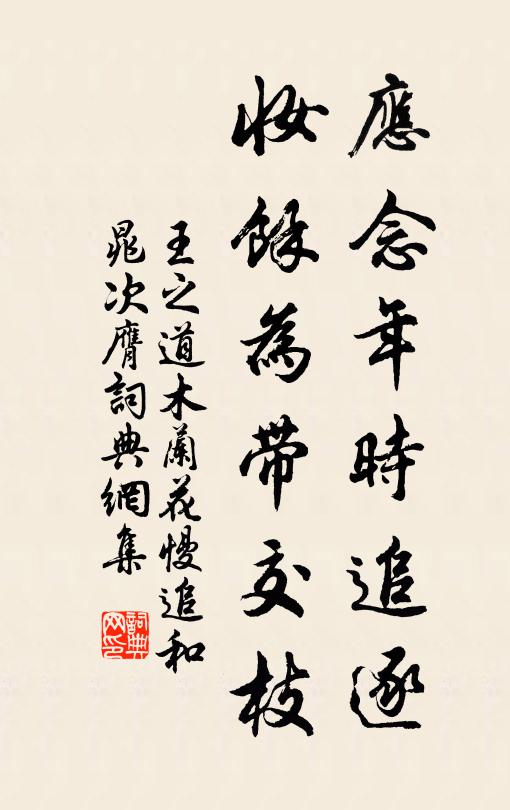 應念年時追逐
妝餘為帶交枝
王之道木蘭花慢追和
晁次膺詞典網集
詞典網印